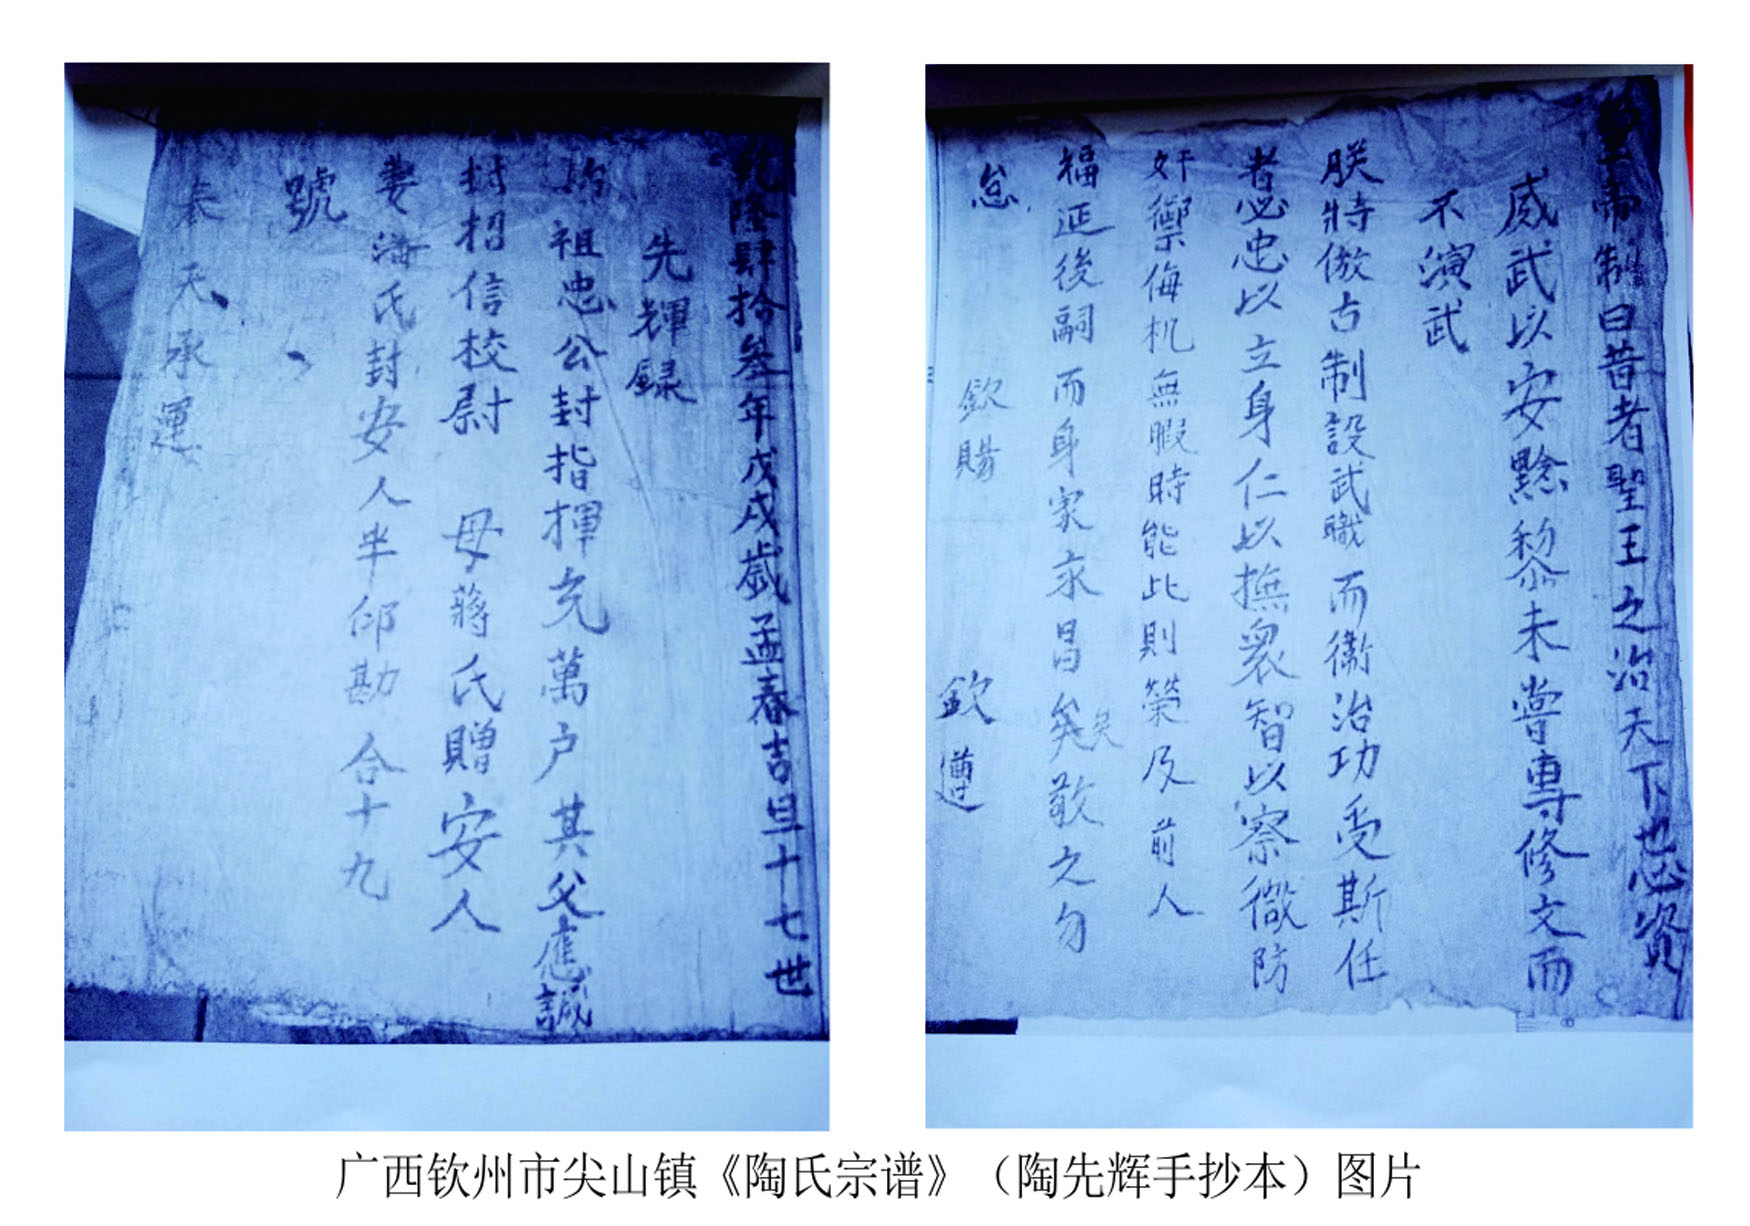 乾隆肆拾叁年戊戌歲孟春吉旦十七世
先輝録
始祖忠公封指揮充萬户其父應誠
封招信校尉 母蔣氏贈安人
妻潘氏封安人半印勘合十九
號
奉天承運
皇帝制曰昔者聖王之治天下也必資
威武以安黔黎未嘗專修文而
不演武
朕特倣古制設武職而衛治功受斯任
者必忠以立身仁以撫衆智以察微防
奸禦侮机無暇時能此則榮及前人
福延後嗣而身家永昌矣敬之勿
怠 欽賜 欽遵
广西钦州市尖山镇《陶氏宗谱》（陶先辉手抄本）图片